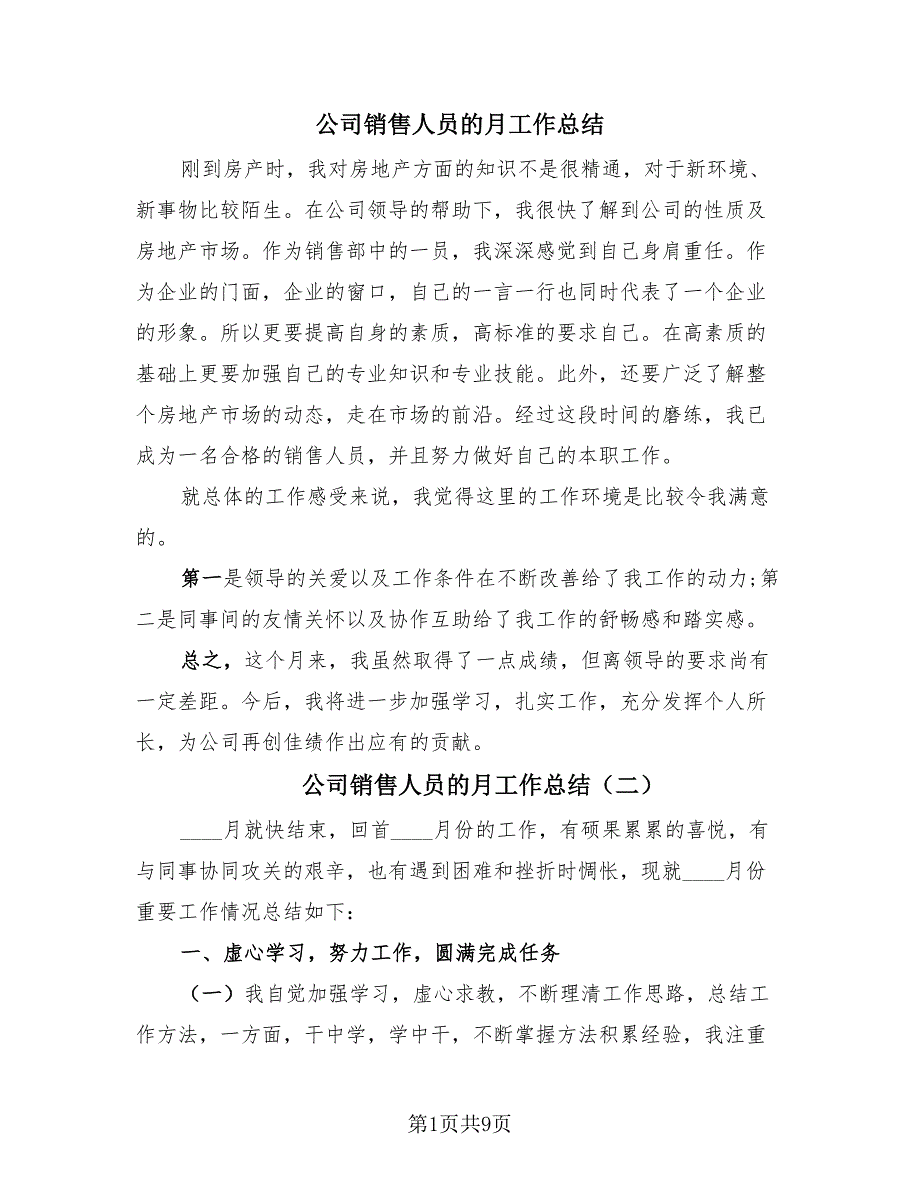 公司销售人员的月工作总结
刚到房产时，我对房地产方面的知识不是很精通，对于新环境、
新事物比较陌生。在公司领导的帮助下，我很快了解到公司的性质及
房地产市场。作为销售部中的一员，我深深感觉到自己身肩重任。作
为企业的门面，企业的窗口，自己的一言一行也同时代表了一个企业
的形象。所以更要提高自身的素质，高标准的要求自己。在高素质的
基础上更要加强自己的专业知识和专业技能。此外，还要广泛了解整
个房地产市场的动态，走在市场的前沿。经过这段时间的磨练，我已
成为一名合格的销售人员，并且努力做好自己的本职工作。
就总体的工作感受来说，我觉得这里的工作环境是比较令我满意
的。
第一是领导的关爱以及工作条件在不断改善给了我工作的动力;第
二是同事间的友情关怀以及协作互助给了我工作的舒畅感和踏实感。
总之，这个月来，我虽然取得了一点成绩，但离领导的要求尚有
一定差距。今后，我将进一步加强学习，扎实工作，充分发挥个人所
长，为公司再创佳绩作出应有的贡献。
公司销售人员的月工作总结（二）
____月就快结束，回首____月份的工作，有硕果累累的喜悦，有
与同事协同攻关的艰辛，也有遇到困难和挫折时惆怅，现就____月份
重要工作情况总结如下：
一、虚心学习，努力工作，圆满完成任务
（一）我自觉加强学习，虚心求教，不断理清工作思路，总结工
作方法，一方面，干中学，学中干，不断掌握方法积累经验，我注重
第1页共9页